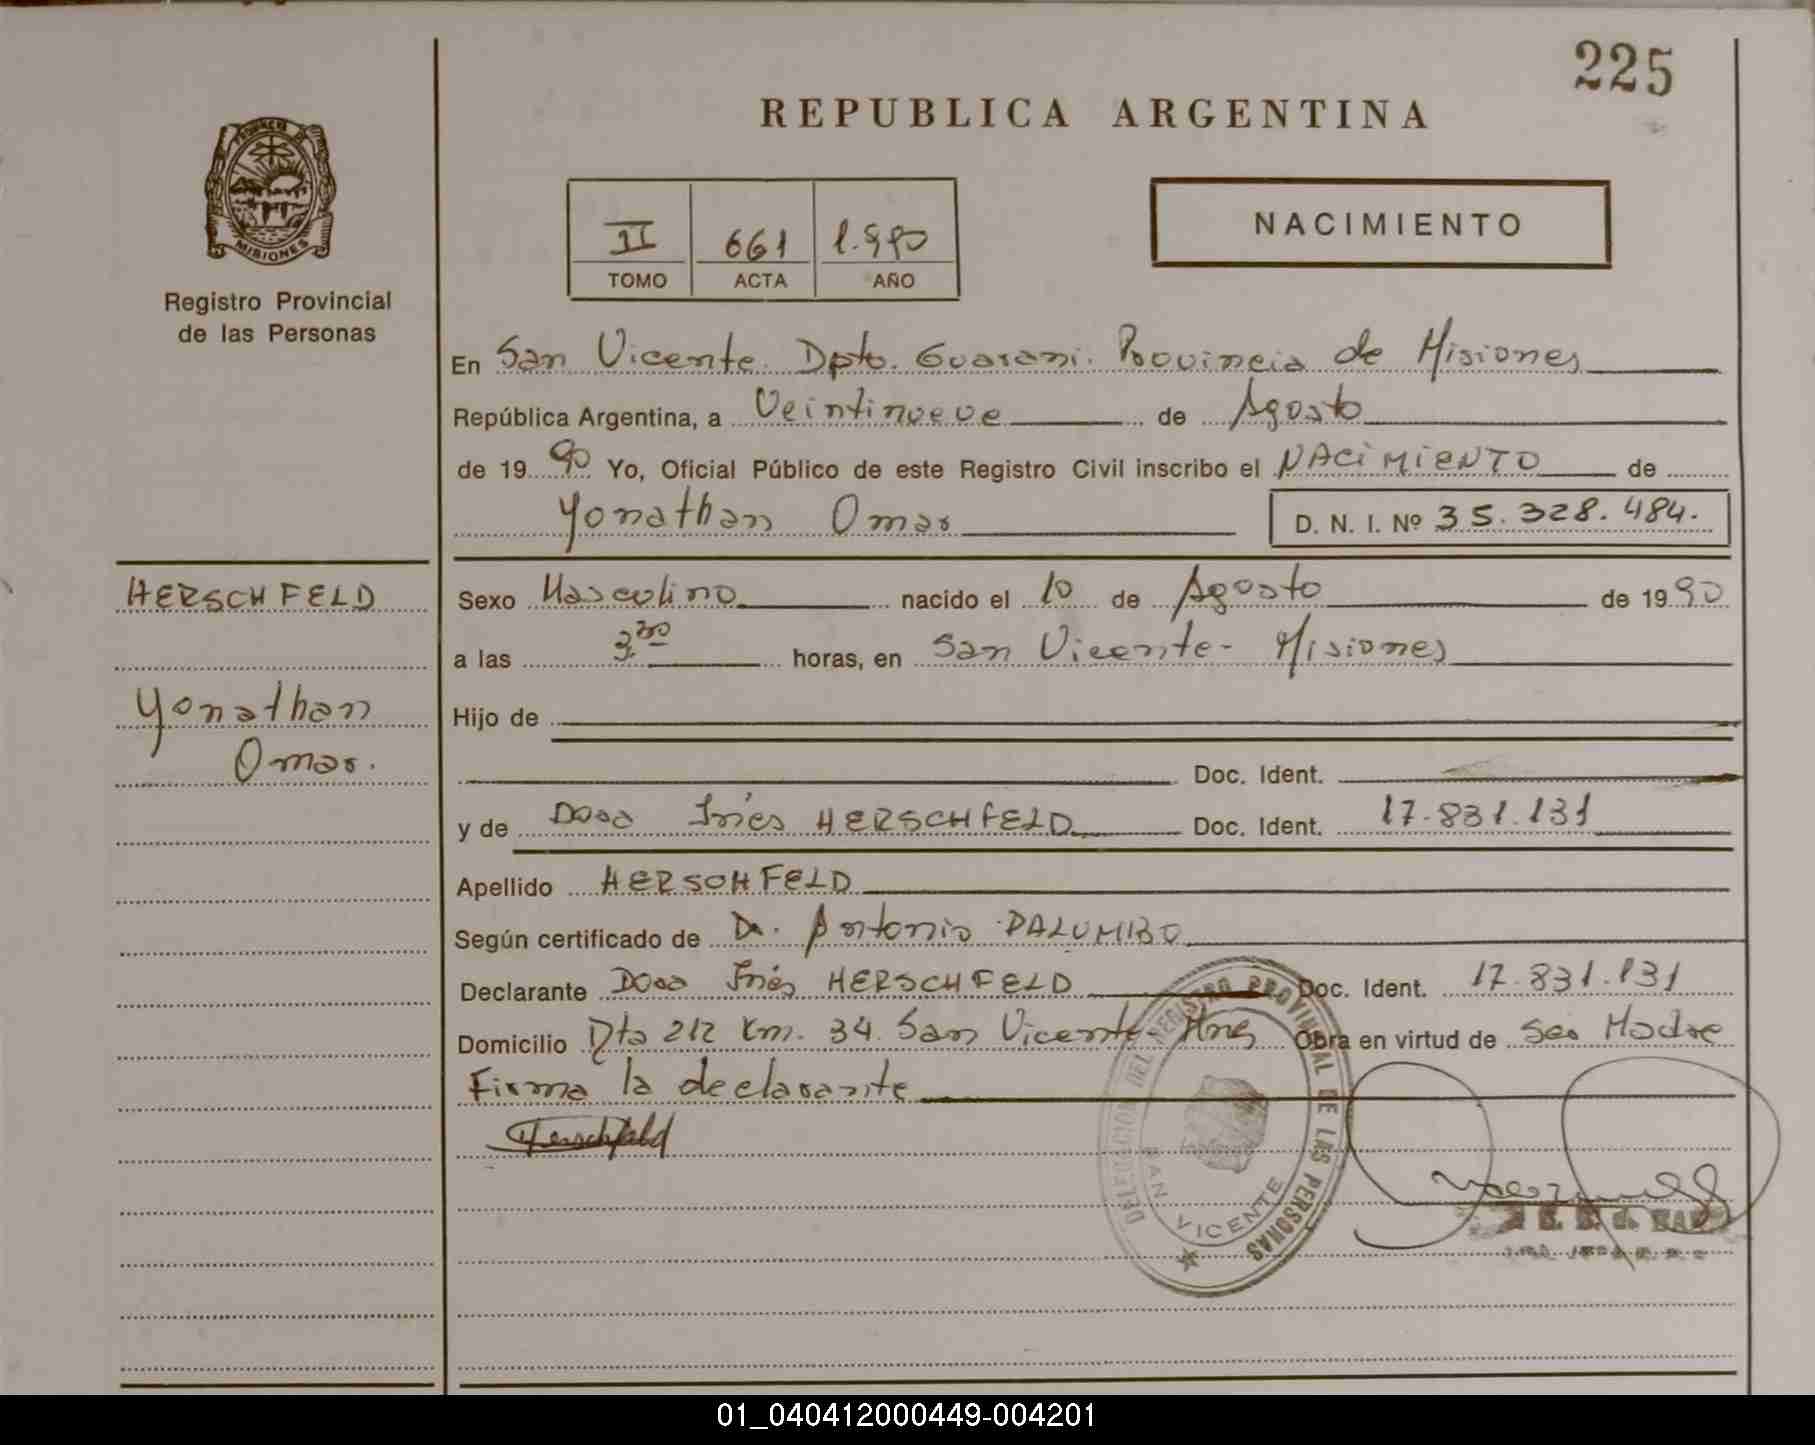 225
REPUBLICA ARGENTINA
PROVINCIA DE
MISIONES
Registro Provincial
de las Personas
II 661 1.990
TOMO ACTA AÑO
NACIMIENTO
En San Vicente. Dpto. Guarani. Provincia de Misiones
República Argentina, a Veintinueve de Agosto
de 19 90 Yo, Oficial Público de este Registro Civil inscribo el NACiMiENTO de
Yonathan Omar
D. N. I. Nº 35.328.484.
HERSCHFELD
Yonathan
Omar.
Sexo Masculino nacido el 10 de Agosto de 19 90
a las 3.30 horas, en San Vicente- Misiones
Hijo de
Doc. Ident.
y de Dora Inés HERSCHFELD Doc. Ident. 17.831.131
Apellido HERSCHFELD
Según certificado de Dr. Antonio PALUMBO
Declarante Dora Inés HERSCHFELD Doc. Ident. 17.831.131
Domicilio Rta 212 Km. 34. San Vicente Mnes Obra en virtud de Ser Madre
Firma la declarante
Herschfeld
DELEGACION DEL REGISTRO PROVINCIAL DE LAS PERSONAS
SAN VICENTE
01_040412000449-004201